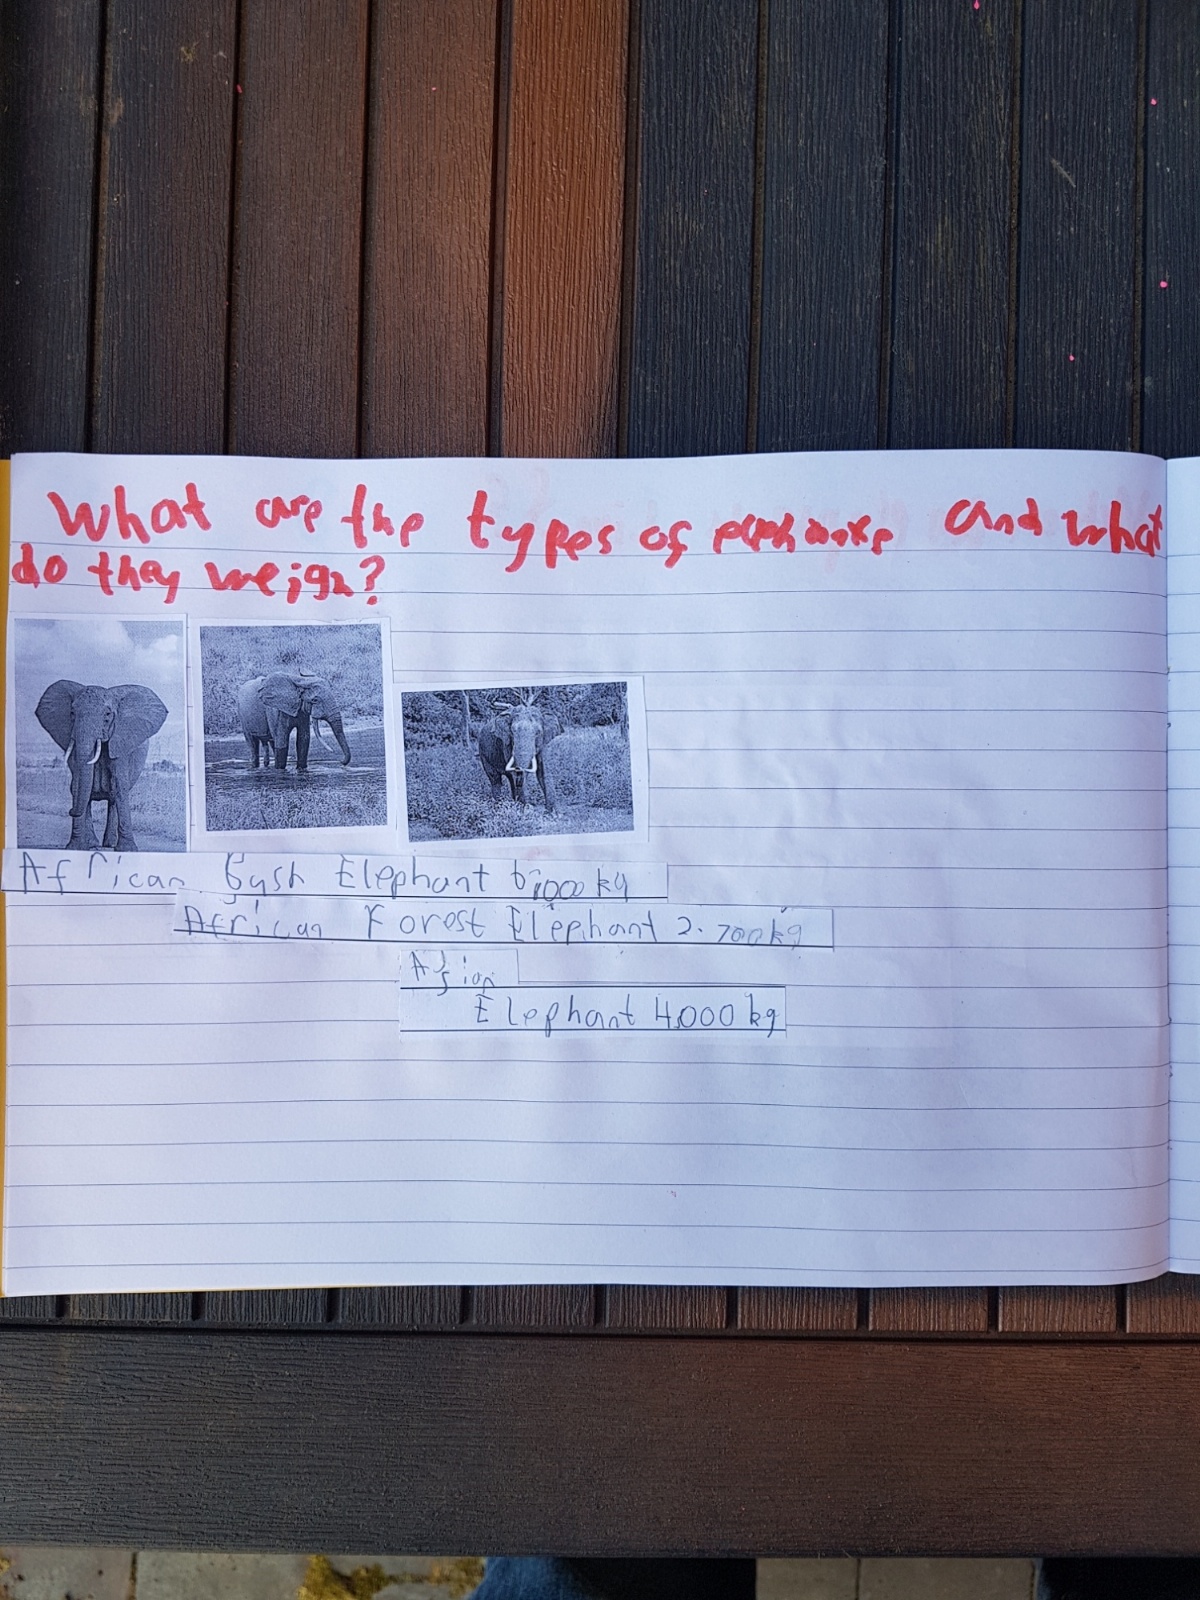 What are the types of elephants and what
do they weigh?
African Bush Elephant 6,000 kg
African Forest Elephant 2.700kg
Asian
Elephant 4,000 kg